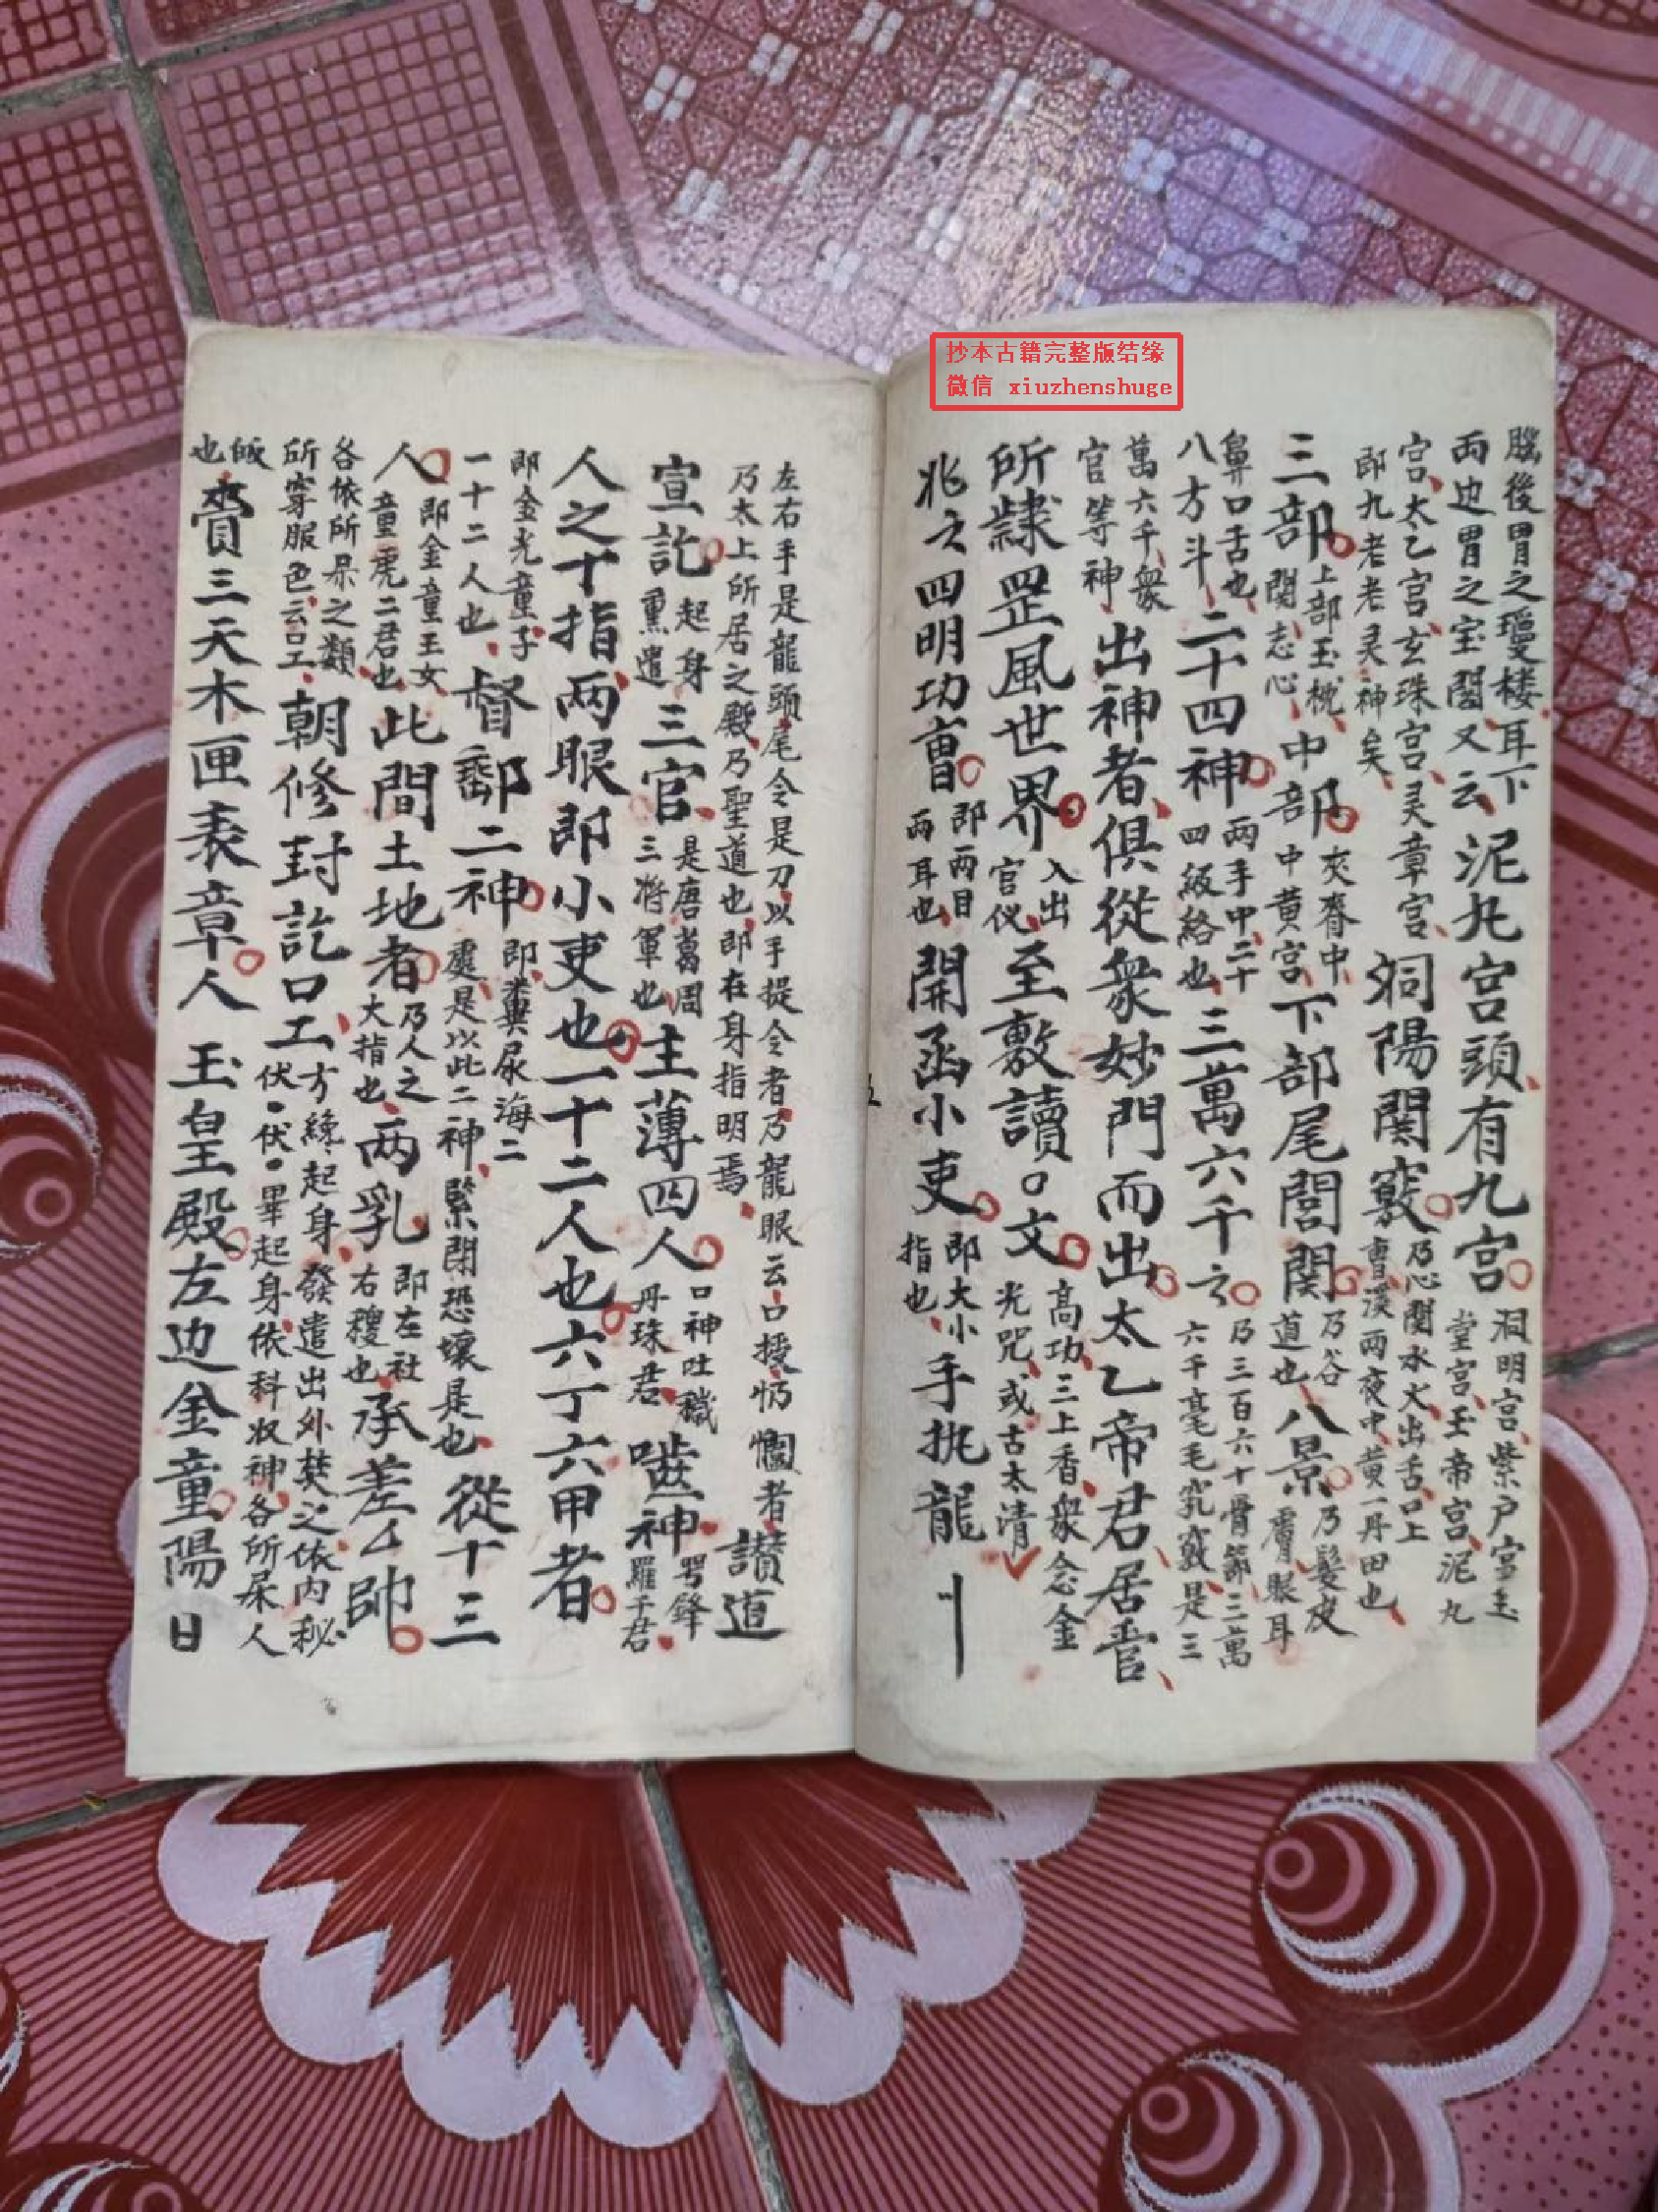 抄本古籍完整版结缘
微信 xiuzhenshuge
腦後胃之瓊楼、耳下
两边胃之宝阁又云、泥丸宫頭、有九宫
洞明宫、紫户宫玉
堂宫、玉帝宫、泥丸
宫、太乙宫、玄珠宫、灵章宫、
即九老老灵神矣、洞陽関竅
乃心関水火、出舌口上
曹溪两夜中、黄一丹田也
三部
上部玉枕、
関、志心、中部
夾脊中、
中黄宫、下部尾閭関
乃谷
道也、八景
乃髮皮
膚、眼耳
鼻口舌也、
八方斗、二十四神
两手中、二十
四級絡也、三萬六千云
乃三百六十骨節、三萬
六千毫毛竅、是三
萬六千、衆
官等神、出神者、俱從衆妙門而出太乙帝君、居
所隷罡風世界
入出
官仪、至敷讀口文
高功、三上香、衆念金
光咒、或古太清
兆云四明功曺
即两目
两耳也、開函小吏
即大小
指也、手执龍
左右手是龍頭尾令是刀、以手提令者、乃龍眼云口授
乃太上所居之殿、乃聖道也、即在身指明焉、讃道
宣訖
起身
熏遣、三官、
是唐葛周
三將軍也、主薄四人
口神吐穢
丹珠君、神
羅千君、
人之十指、两眼即小吏也一十二人也六丁六甲者
即金光童子、
一十二人也、督郵二神
即糞尿海二
處、是以此二神、緊閉恐壞是也、從十三
人
即金童玉女、
童虎二君也、此間土地者
乃人之
大指也、两乳
即左社
右稷也、承差厶帥
各依所杲之類
所穿服色、云口工、朝修封訖口工、
方纔起身、發遣出外焚之、依内秘、
伏、伏、畢起身、依科收神、各所杲人
皈
也、賫三天木匣表章人 玉皇殿左边金童、陽日